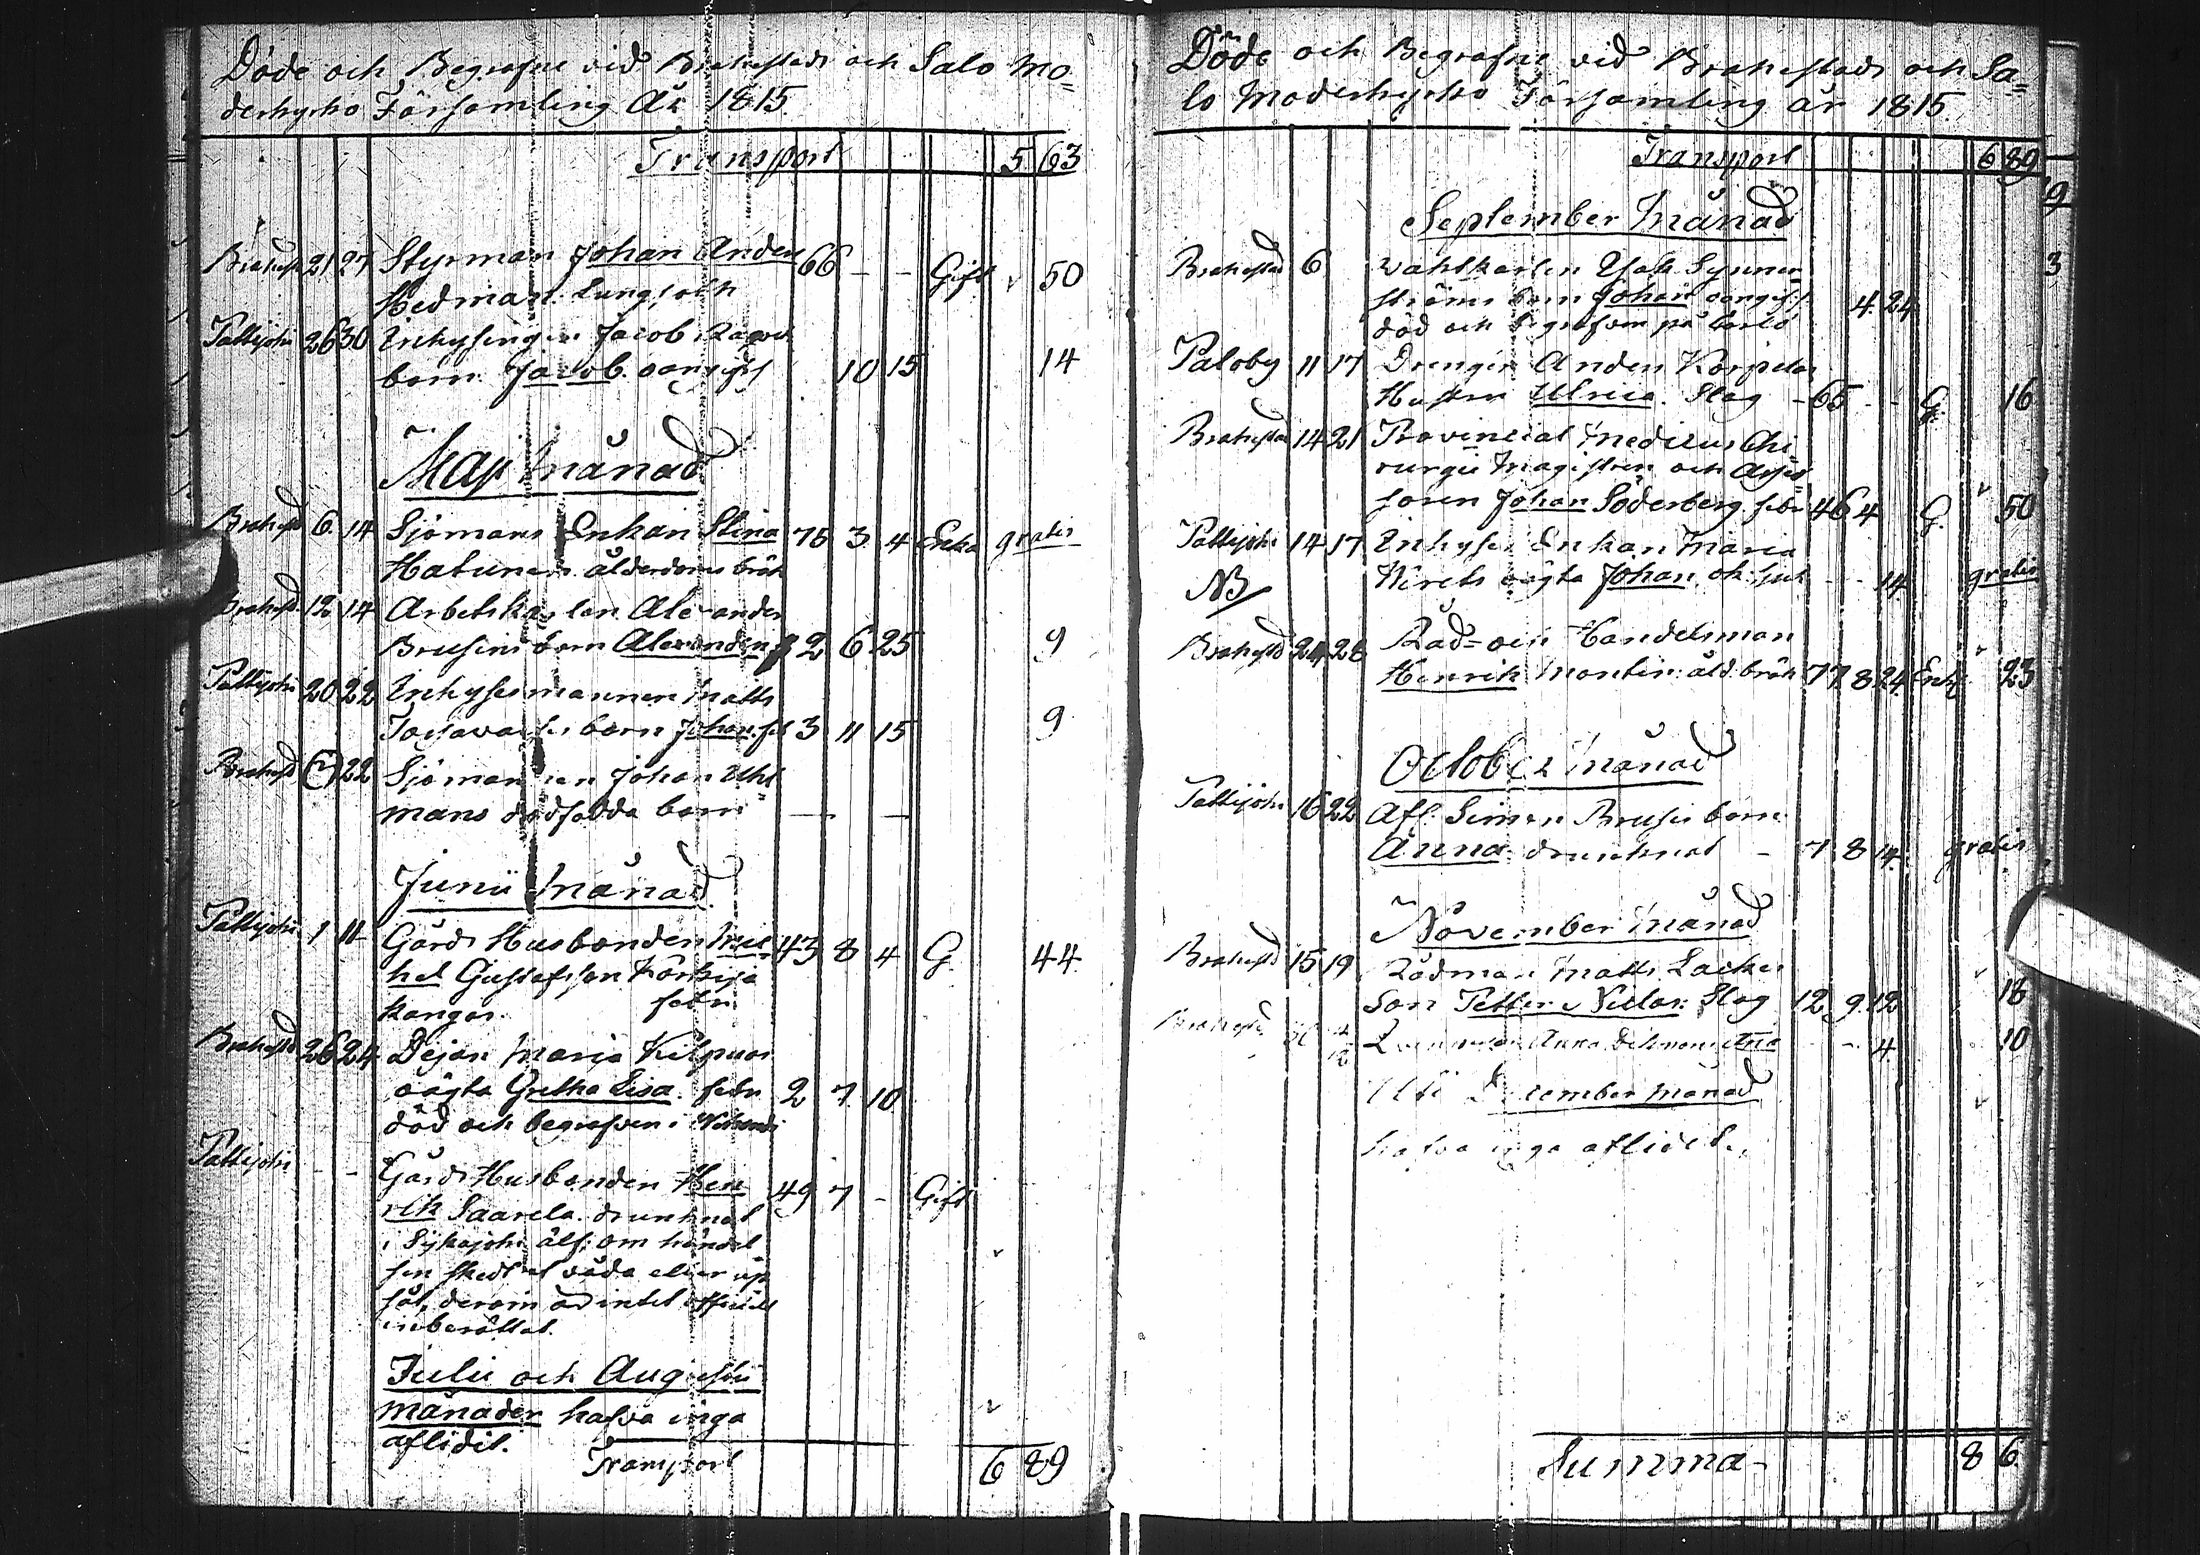 Döde och Begrafne vid Brahestads och Salo Mo=
derkyrko Församling År 1815.
Transport 5 63
Brahest 21 27 Styrman Johan Anders 66 - - Gift 50
Hedman. Lungsoth
Pattijoki 26 30 Inhysingen Jacob
barn Jacob. oangifs 10 15 14
Maji Månad
Brahestd 6. 14 Sjömans Enkan Stina 75 3 4 Enka gratis
Hatunen. ålderdoms bräk
Brahestd. 12 14 Arbetskarlen Alexander
Brusins barn Alexander 2 6 25 9
Pattijoki 20 22 Inhysesmannen Matts
barn Johan 3 11 15 9
Brahestd 22 Sjömannen Johan Uhl=
mans dödfödda barn — —
Junii Månad
Pattijoki 1 11 Gårds Husbonden Mic= 43 8 4 G. 44
hel Gustafsson Körkijä
kangas. feber
Brahestd 26 24 Pejan Maria Kilpuas
oägta Gretha Lisa. feber 2 7 10
död och begrafven i
Pattijoki - - Gårds Husbonden Hen= 49 7 - Gift
rik Saarela. drunknat
i Sijkajoki älf: om händel
sen skedt af våda eller up
såt, derom är intet officielt
inberättat.
Julii och Augusti
månader hafva inga
aflidit.
Transport 6 89
Döde och Begrafne vid Brahestads och Sa=
lo Moderkyrko Församling år 1815.
Transport 6 89
September Månad
Brahestad 6 Wahlkarlen Isak Synner
ströms barn Johan oangifs. 4. 24
död och begrafven på Carlö
Paloby 11 17 Drengen Anders Korpelas
Hustru Ulrica. Slag - 65 - - G. 16
Brahestad 14 21 Provincial Medicus Chi=
rurgie Magistern och Asses=
soren Johan Söderberg feber 46 4 G. 50
Pattijoki 14 17 Inhyses Enkan Maria
NB oägta Johan ok: sjuk - - 14. gratis
Brahestd 24 28 Råd= och Handelsman
Henrik Montin: åld: bräk 77. 8. 24 Enkl 23
October Månad
Pattijoki 16 22 Afl. Simon Brusis barn
Anna drunknat - 7 8 14. gratis
November Månad
Brahestd 15 19 Rådman Matts Lackes
Son Petter Niclas: Slag 12 9. 12 18
Brahestd Anna - - 4. 10
Uti December månad
hafva inga aflidit.
Summa - 8 6.
9
3